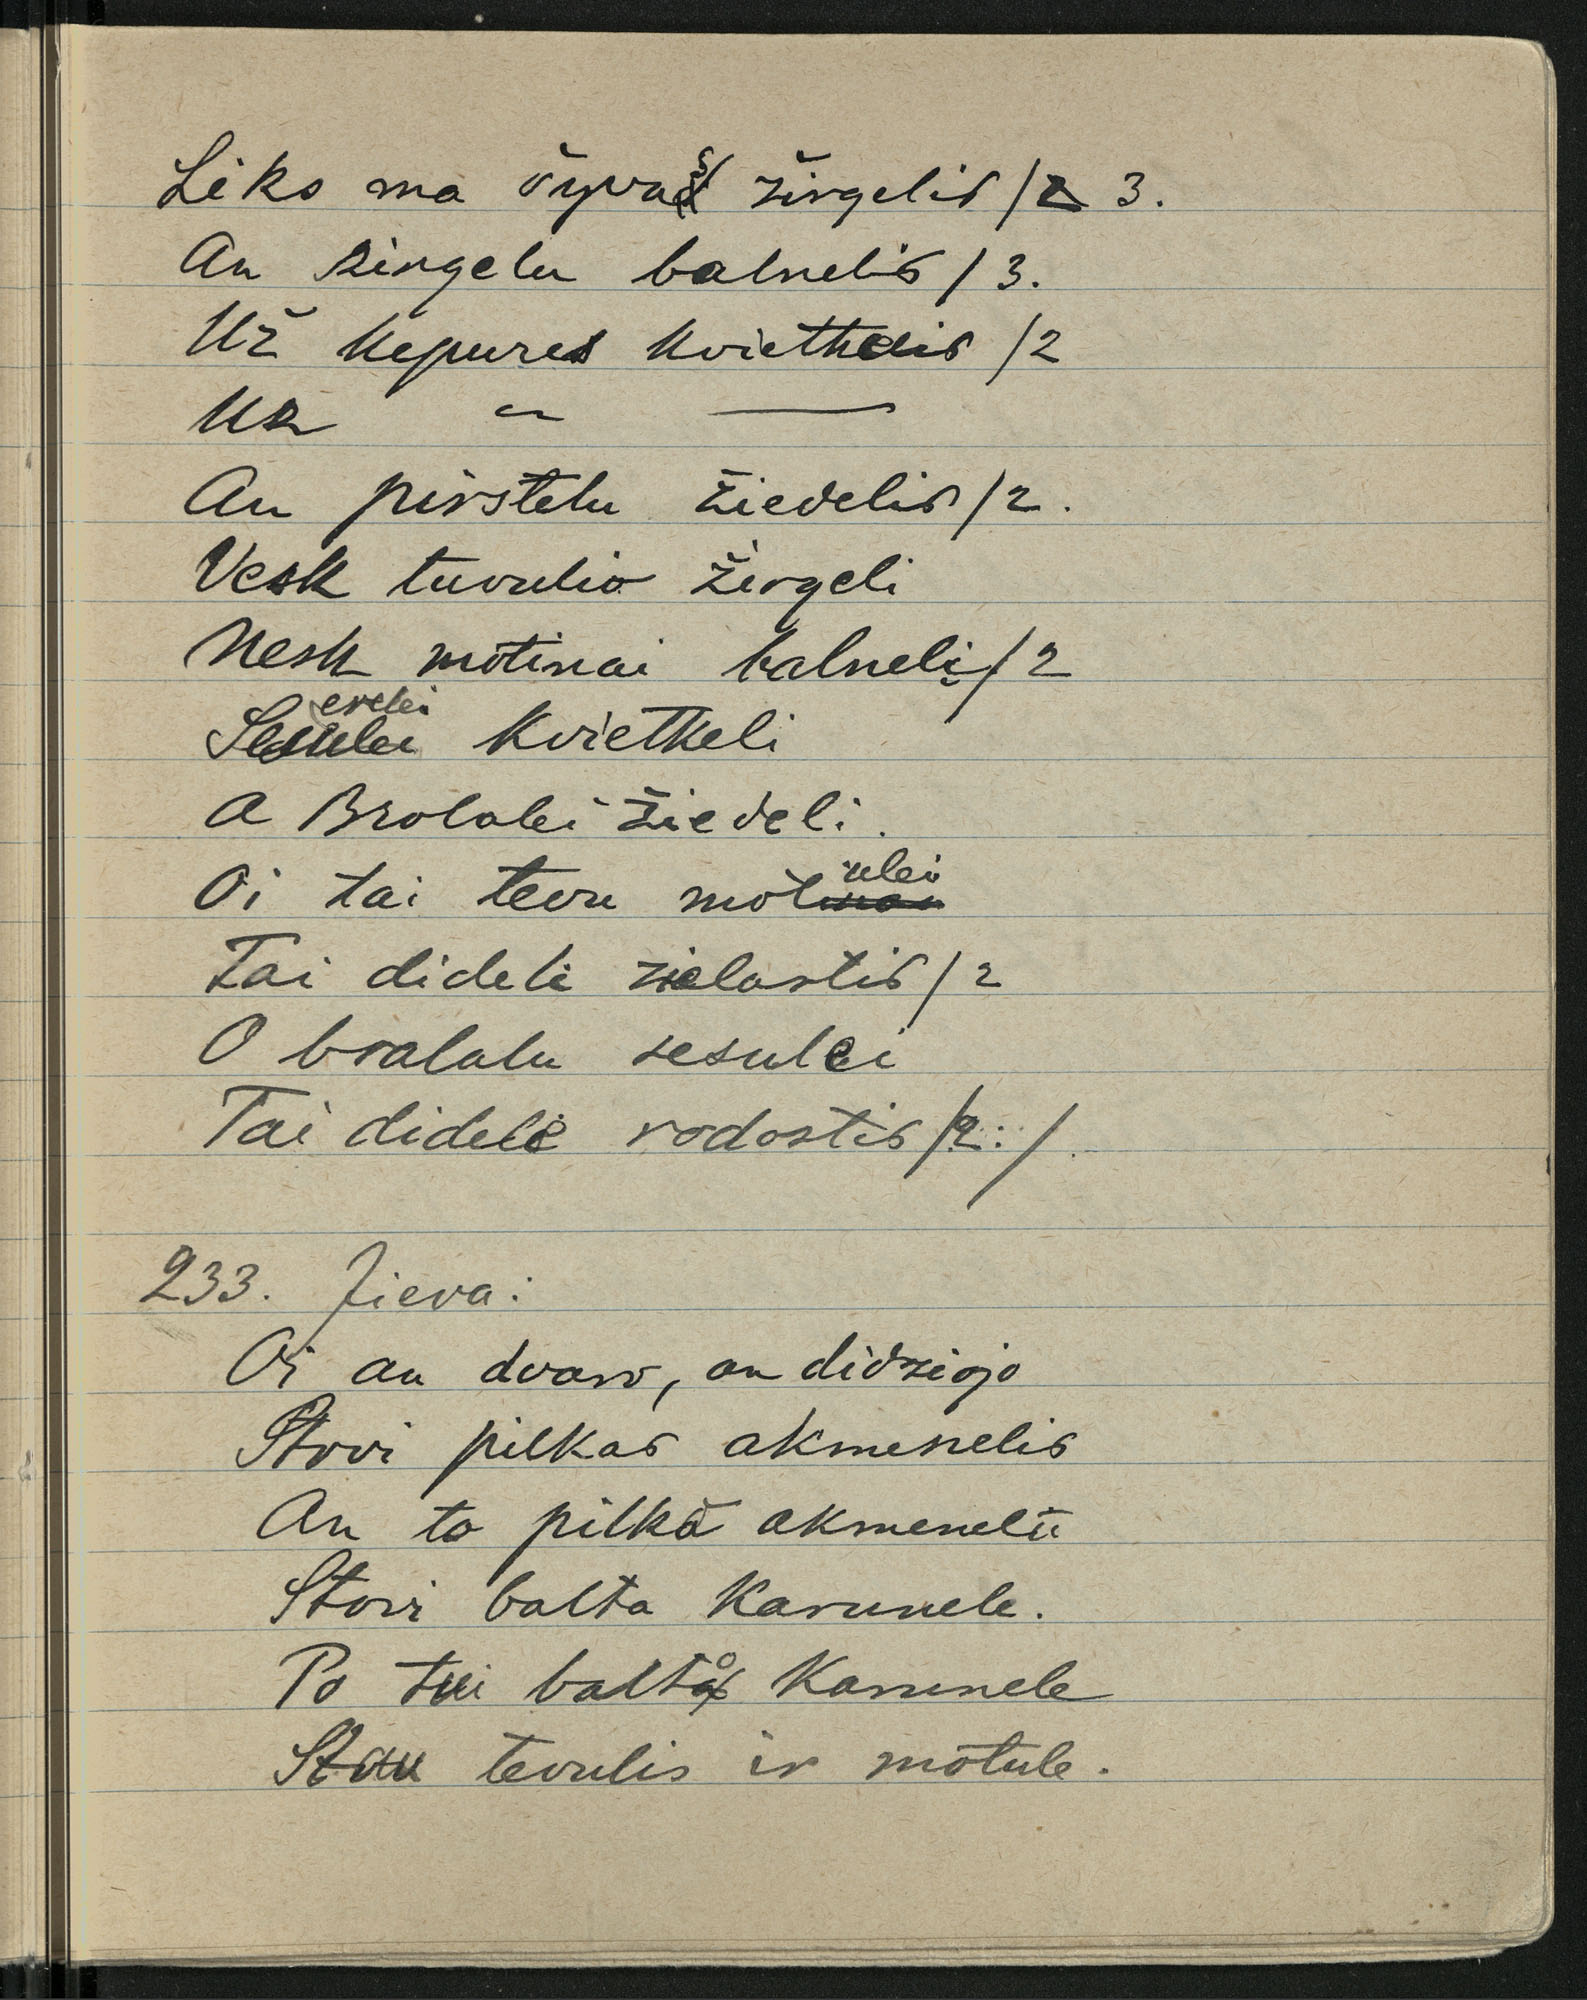 Liko ma žyvas žirgelis /2 3.
An žirgelu balnelis / 3.
Už kepures kvietkelis /2
Už
An pirstelu žiedelis /2.
Vesk tuvulio žirgeli
Nesk motinai balneli /2
Seserelei kvietkeli
A Brolalei žiedeli.
Oi tai tevu motinelei
Tai didele zielastis /2
O bralalu sesulei
Tai didele rodostis /2:/.
233. Jieva:
Oi an dvaro, an didziojo
Stovi pilkas akmenelis
An to pilka akmeneli
Stovi balta karunele.
Po tui balta karunele
tevulis ir motule.